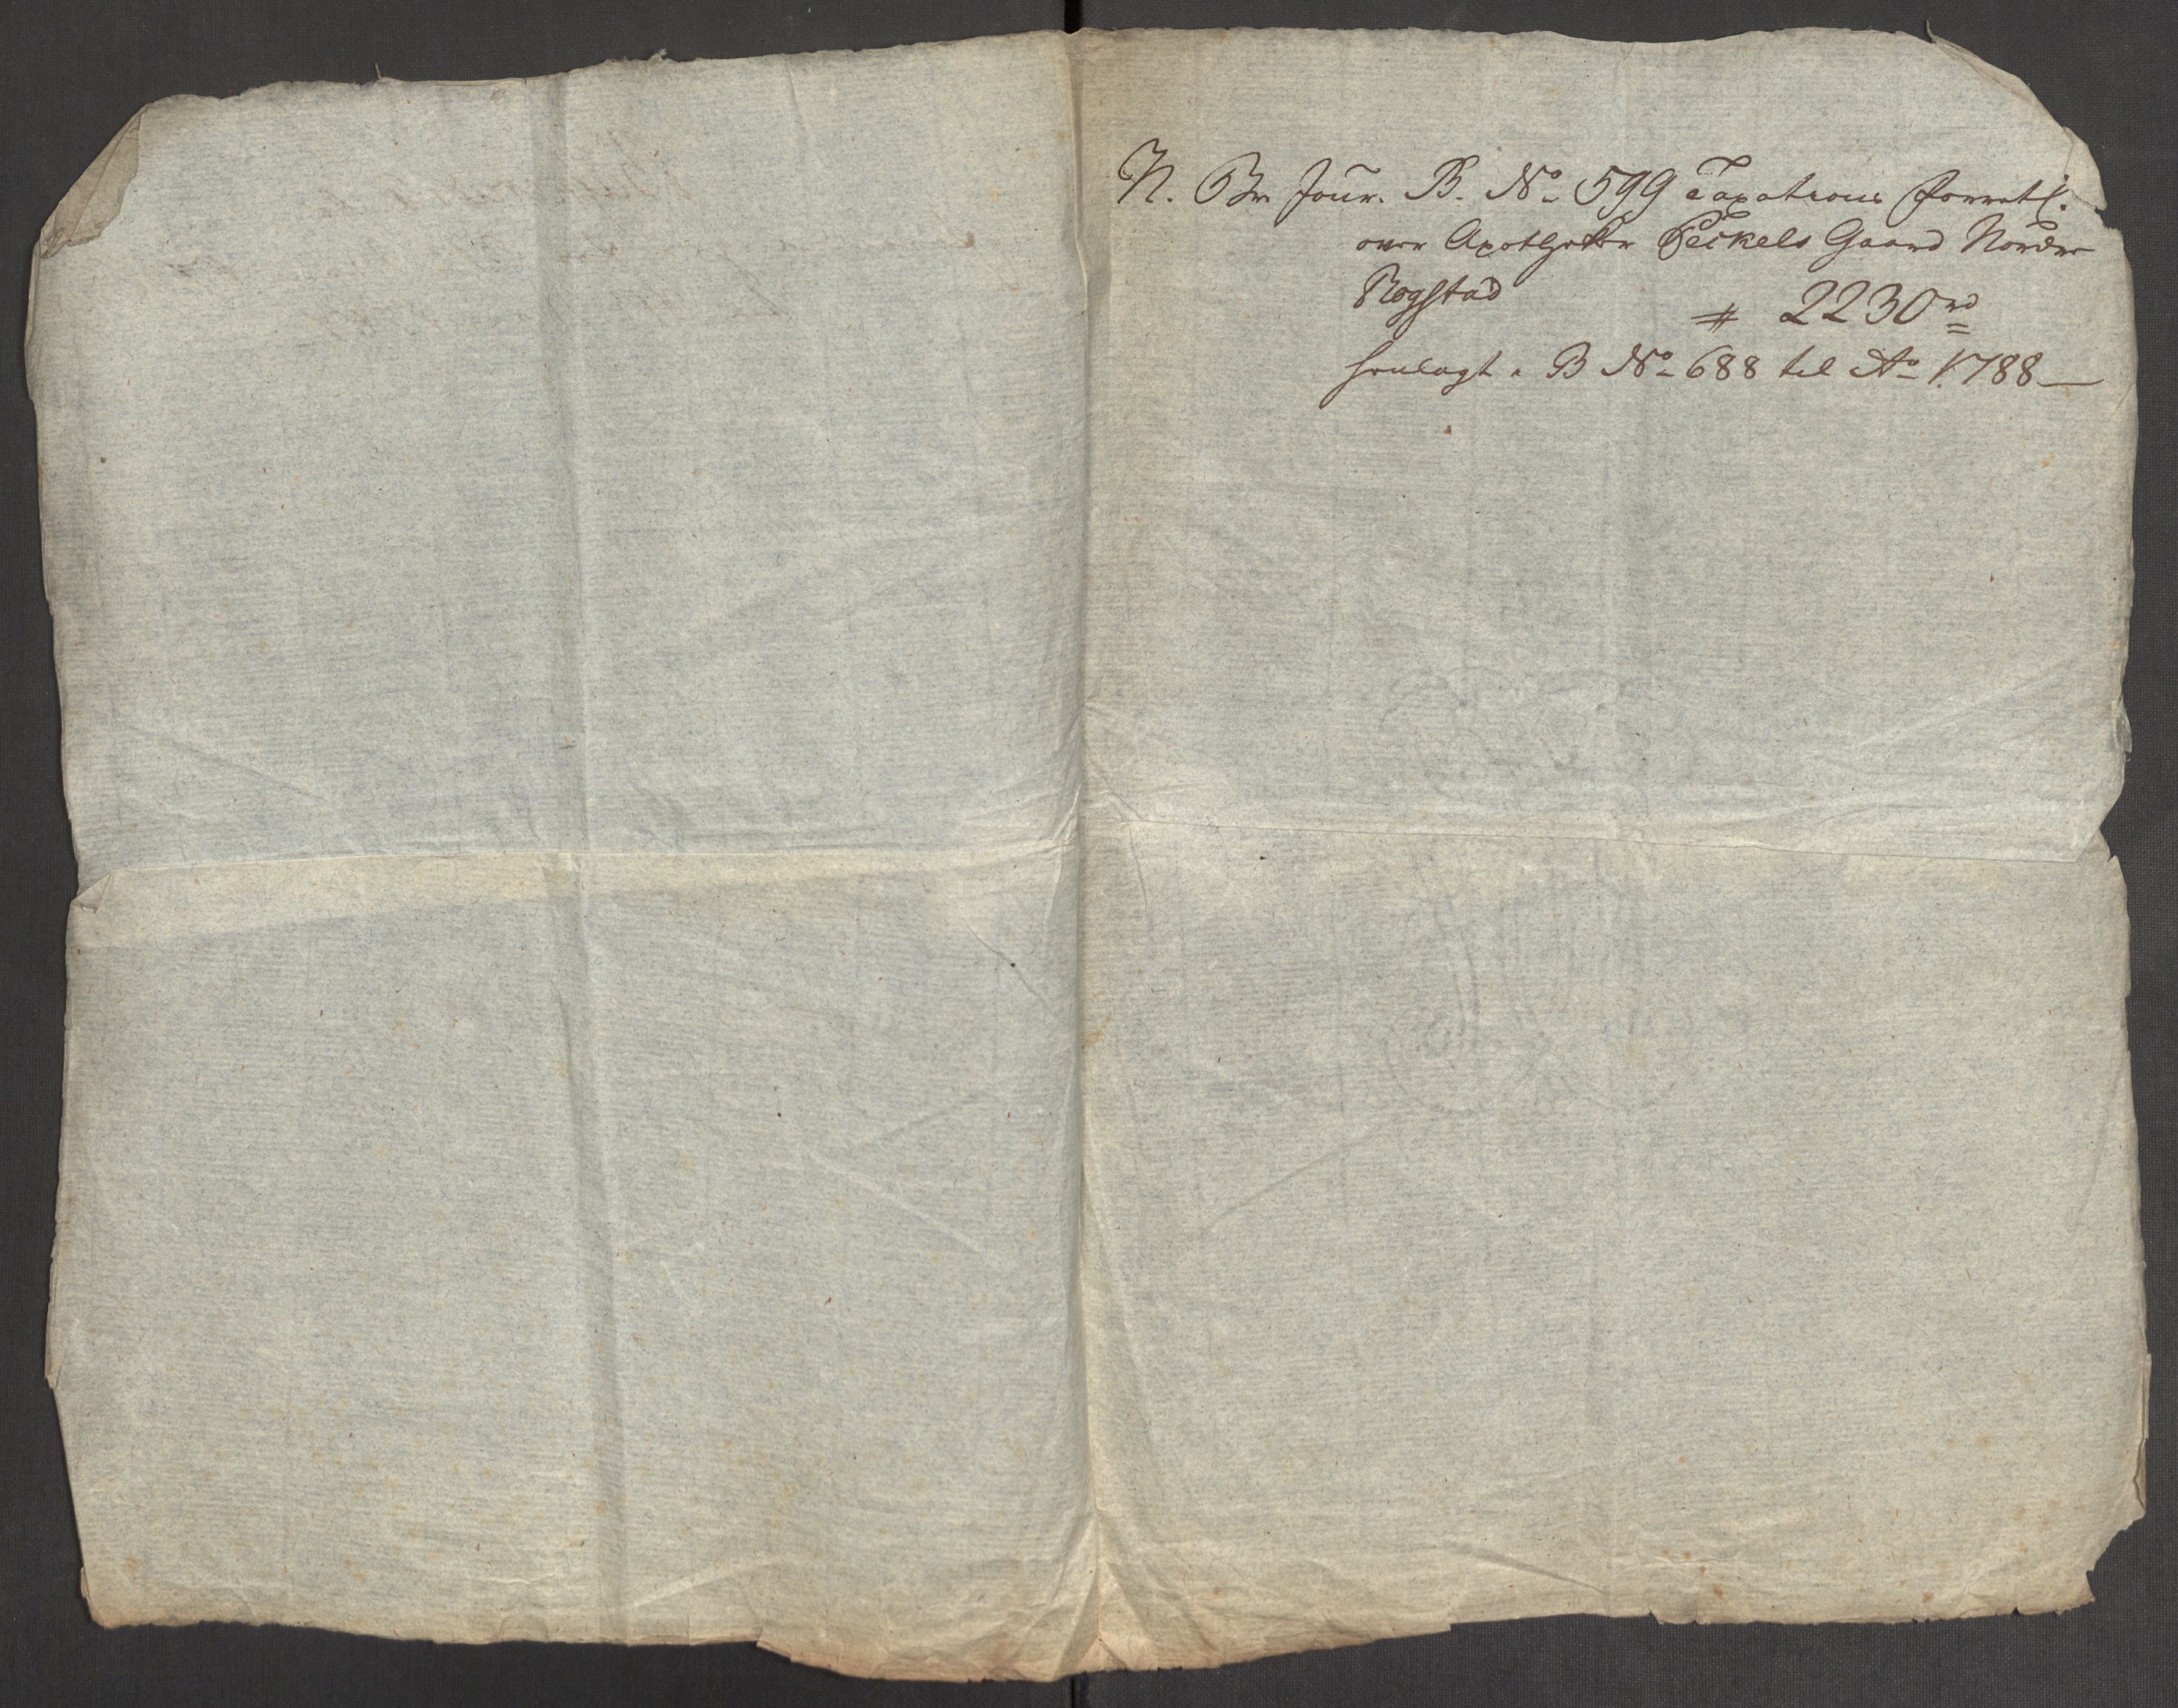 N. Br. Jour. B. No. 599 Taxations Forretn.
over Apotheker Peckels Gaard Nordre
Rogstad
# 2230 rd
henlagt i B No 688 til Ao 1788